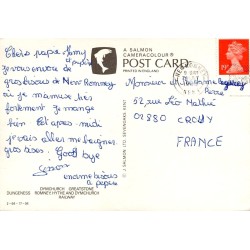 Chers papa Mamy
je vous envoie de
gros bisous de New Romney
où je m'amuse très
fortement Je mange
bien Cet après midi
je vais aller me baigner
gros bisous. Good bye
encore bisous
à papa
A SALMON
CAMERACOLOUR®
POST CARD
PRINTED IN ENGLAND
Monsieur et Madame
52 rue Léo
02880 CROUY
FRANCE
© J. SALMON LTD. SEVENOAKS, KENT
DYMCHURCH GREATSTONE
DUNGENESS ROMNEY HYTHE AND DYMCHURCH
RAILWAY